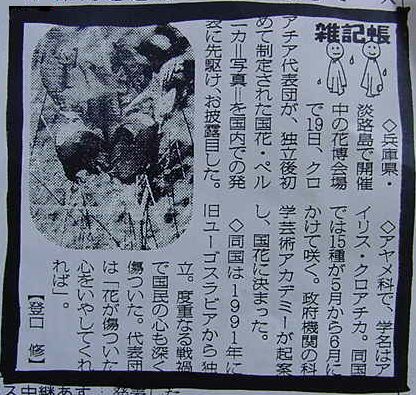 雑記帳
◇兵庫県・
淡路島で開催
中の花博会場
で19日、クロ
アチア代表団が、独立後初
めて制定された国花・ペル
ニカ＝写真＝を国内での発
表に先駆け、お披露目した。
◇アヤメ科で、学名はア
イリス・クロアチカ。同国
では15種が5月から6月に
かけて咲く。政府機関の科
学芸術アカデミーが起案
し、国花に決まった。
◇同国は1991年に
旧ユーゴスラビアから独
立。度重なる戦禍
で国民の心も深く
傷ついた。代表団
は「花が傷ついた
心をいやしてくれ
れば」。
【登口　修】